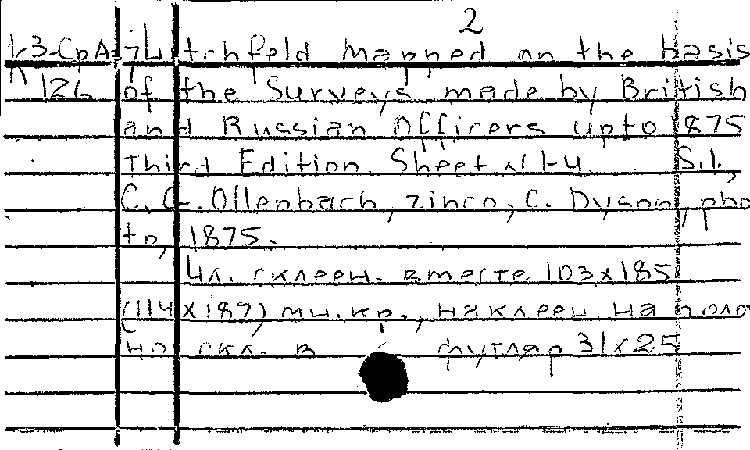 2
k3-CpAz Litchfeld Mapped on the basis
k 126 of the Surveys made by British
and Russian Officers upto 1875
Third Edition. Sheet N 1-4. S.l.,
C. G. Ollenbach, zinco, C. Dyson, pho
to, 1875.
4 л. склеен. вместе 103x185
(114x187) мн. кр., наклеен на поло
но скл. в футляр 31x25